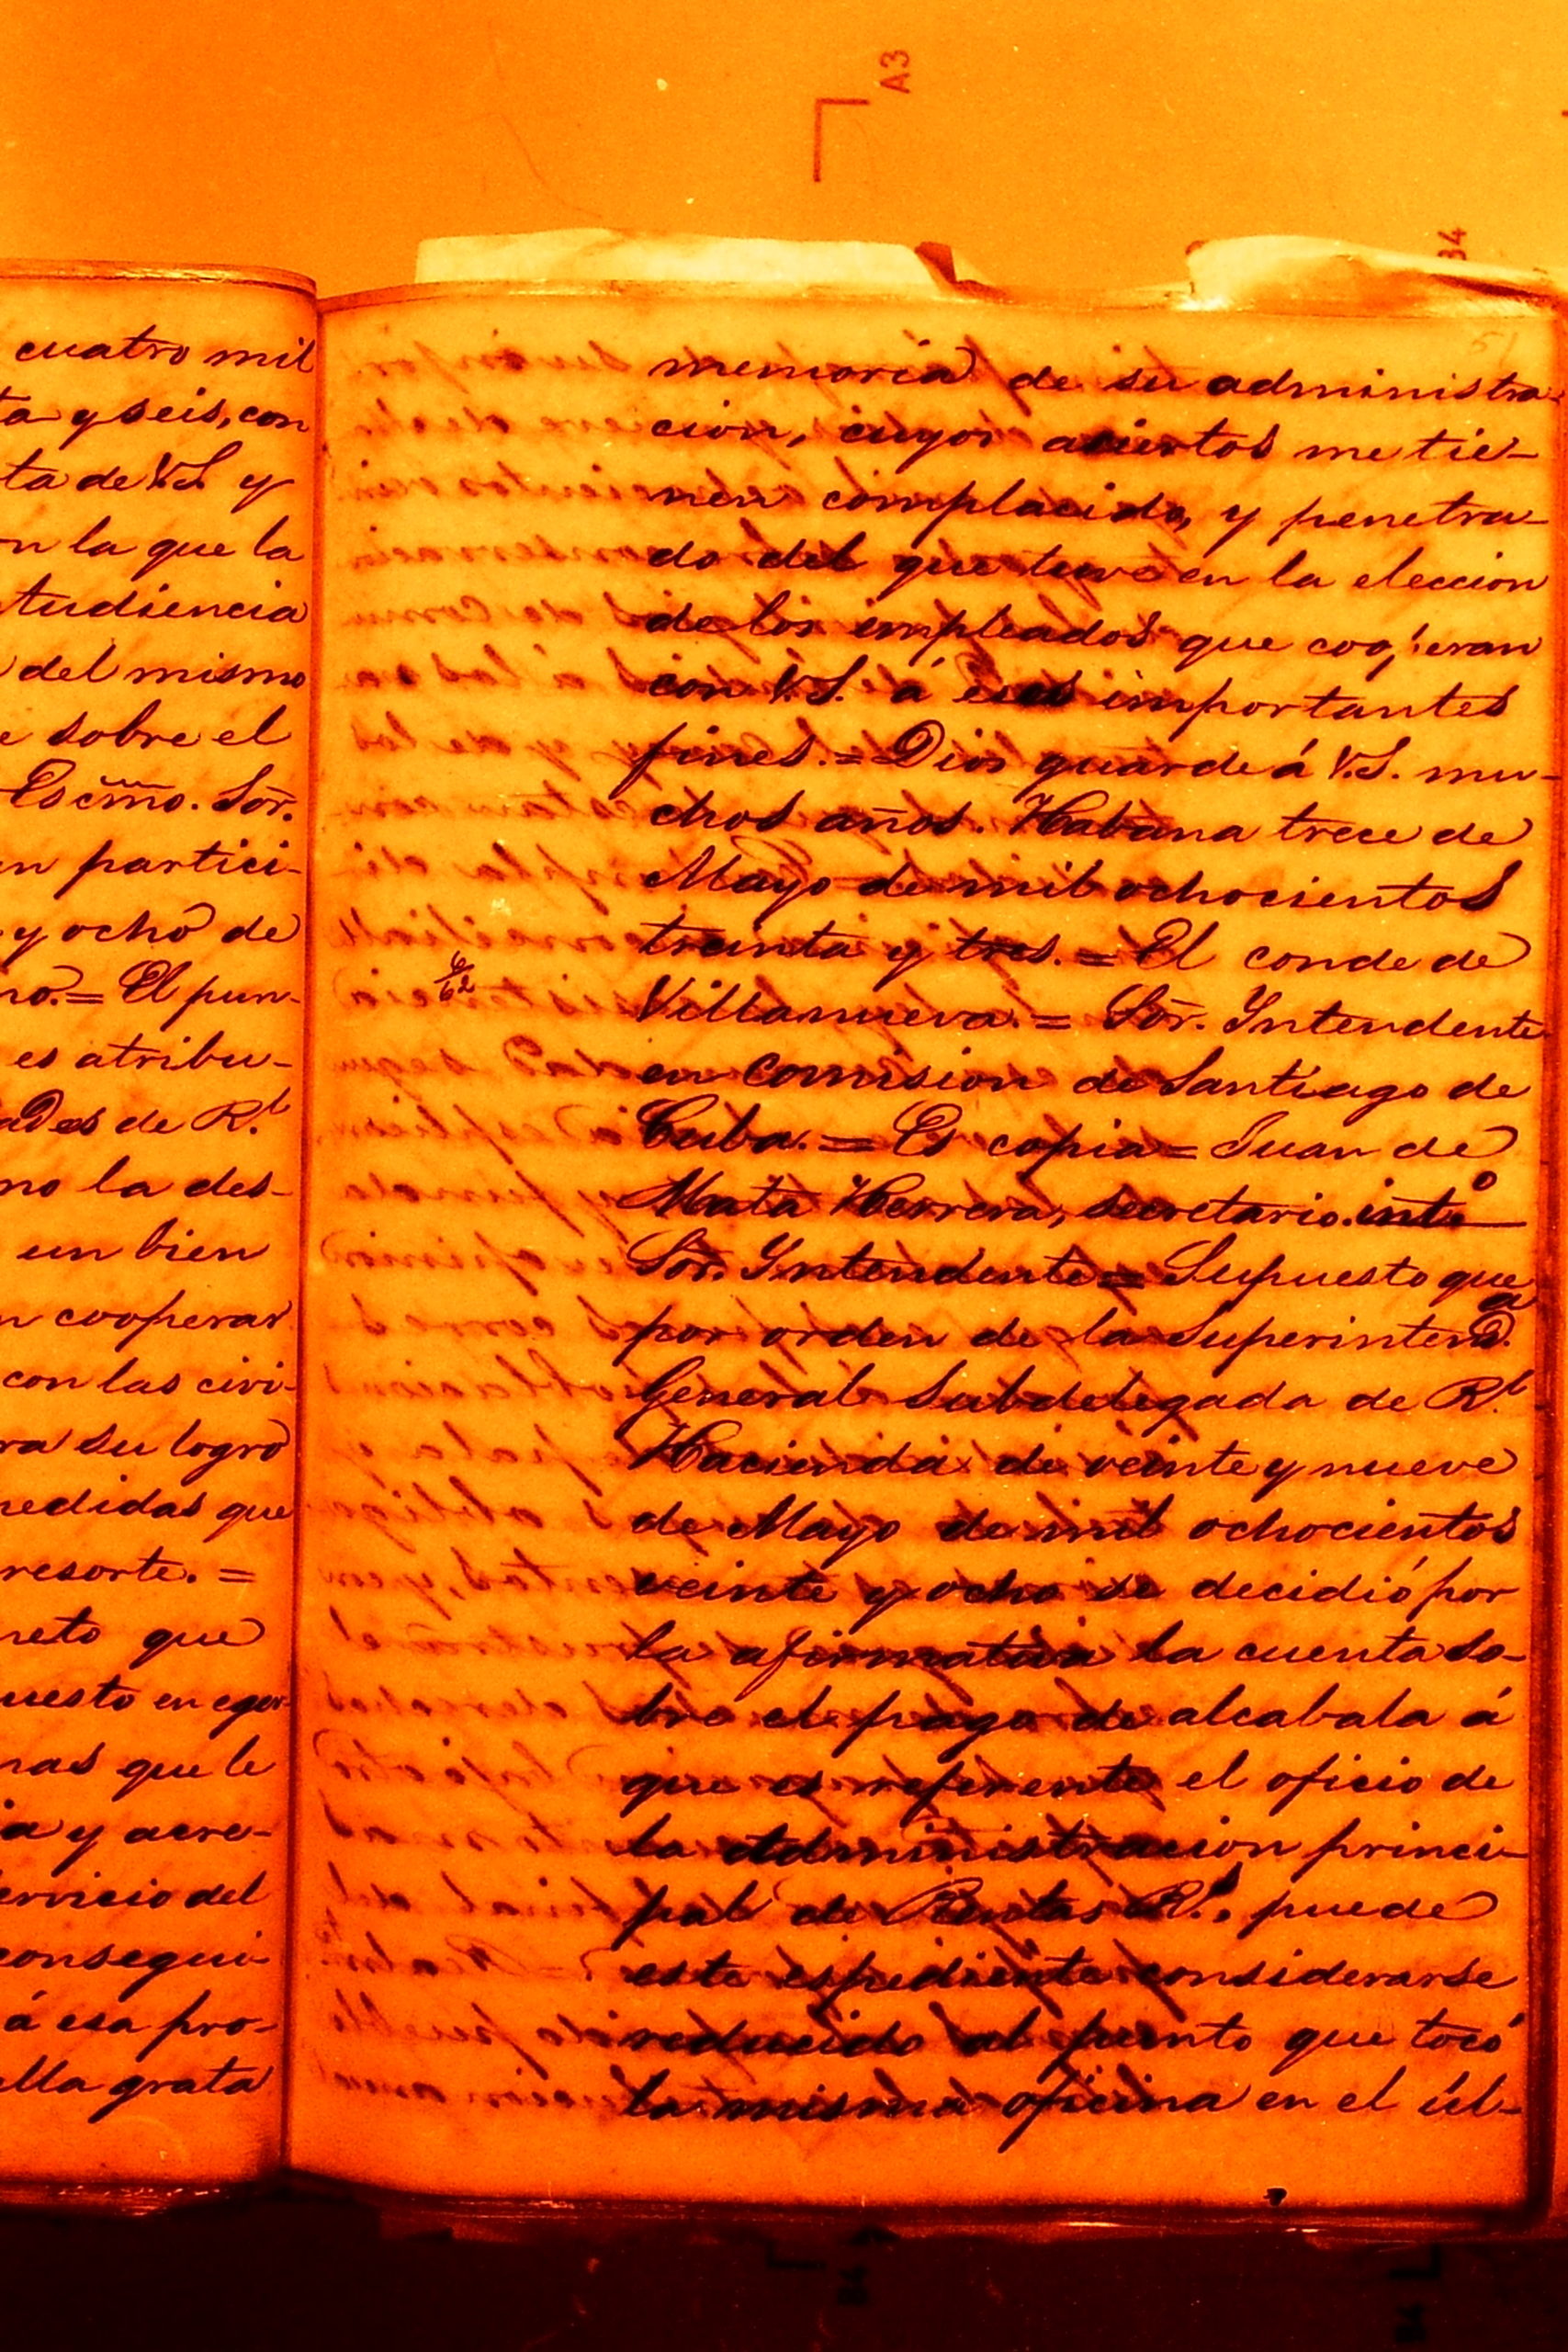 A3
B4
cuatro mil
ta y seis, con
ta de V.S. y
n la que la
udiencia
del mismo
e sobre el
Escmo. Sor.
n partici-
y ocho de
no. = El pun-
es atribu-
ades de Rl.
mo la des-
un bien
n cooperar
con las civi-
ra su logro
medidas que
resorte. =
reto que
uesto en eger-
nas que le
ia y acre-
ervicio del
consegui-
á esa pro-
ella grata
51
memoria de su administra-
cion, cuyos aciertos me tie-
nen complacido, y penetra-
do del que tuvo en la eleccion
de los empleados que cooperan
con V.S. á esos importantes
fines. = Dios guarde á V.S. mu-
chos años. Habana trece de
Mayo de mil ochocientos
treinta y tres. = El conde de
Villanueva. = Sor. Yntendente
en comision de Santiago de
Cuba. = Es copia = Juan de
Mata Herrera, secretario. into
Sor. Yntendente = Supuesto que
por orden de la Superintenda.
General Subdelegada de Rl.
Hacienda de veinte y nueve
de Mayo de mil ochocientos
veinte y ocho se decidió por
la afirmativa la cuenta so-
bre el pago de alcabala á
que es referente el oficio de
la administracion princi-
pal de Rentas Rs., puede
este espediente considerarse
reducido al punto que tocó
la misma oficina en el úl-
6/62
B4
B4